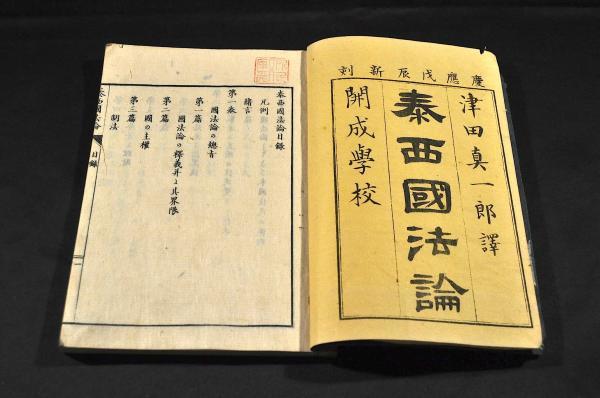 慶應戊辰新刻
津田真一郎譯
泰西國法論
開成學校
泰西國法論目録
凡例
緒言
第一巻
國法論の總旨
第一篇
國法論の釋義并よ其界限
第二篇
國の主權
第三篇
制法
泰西國法論
目録